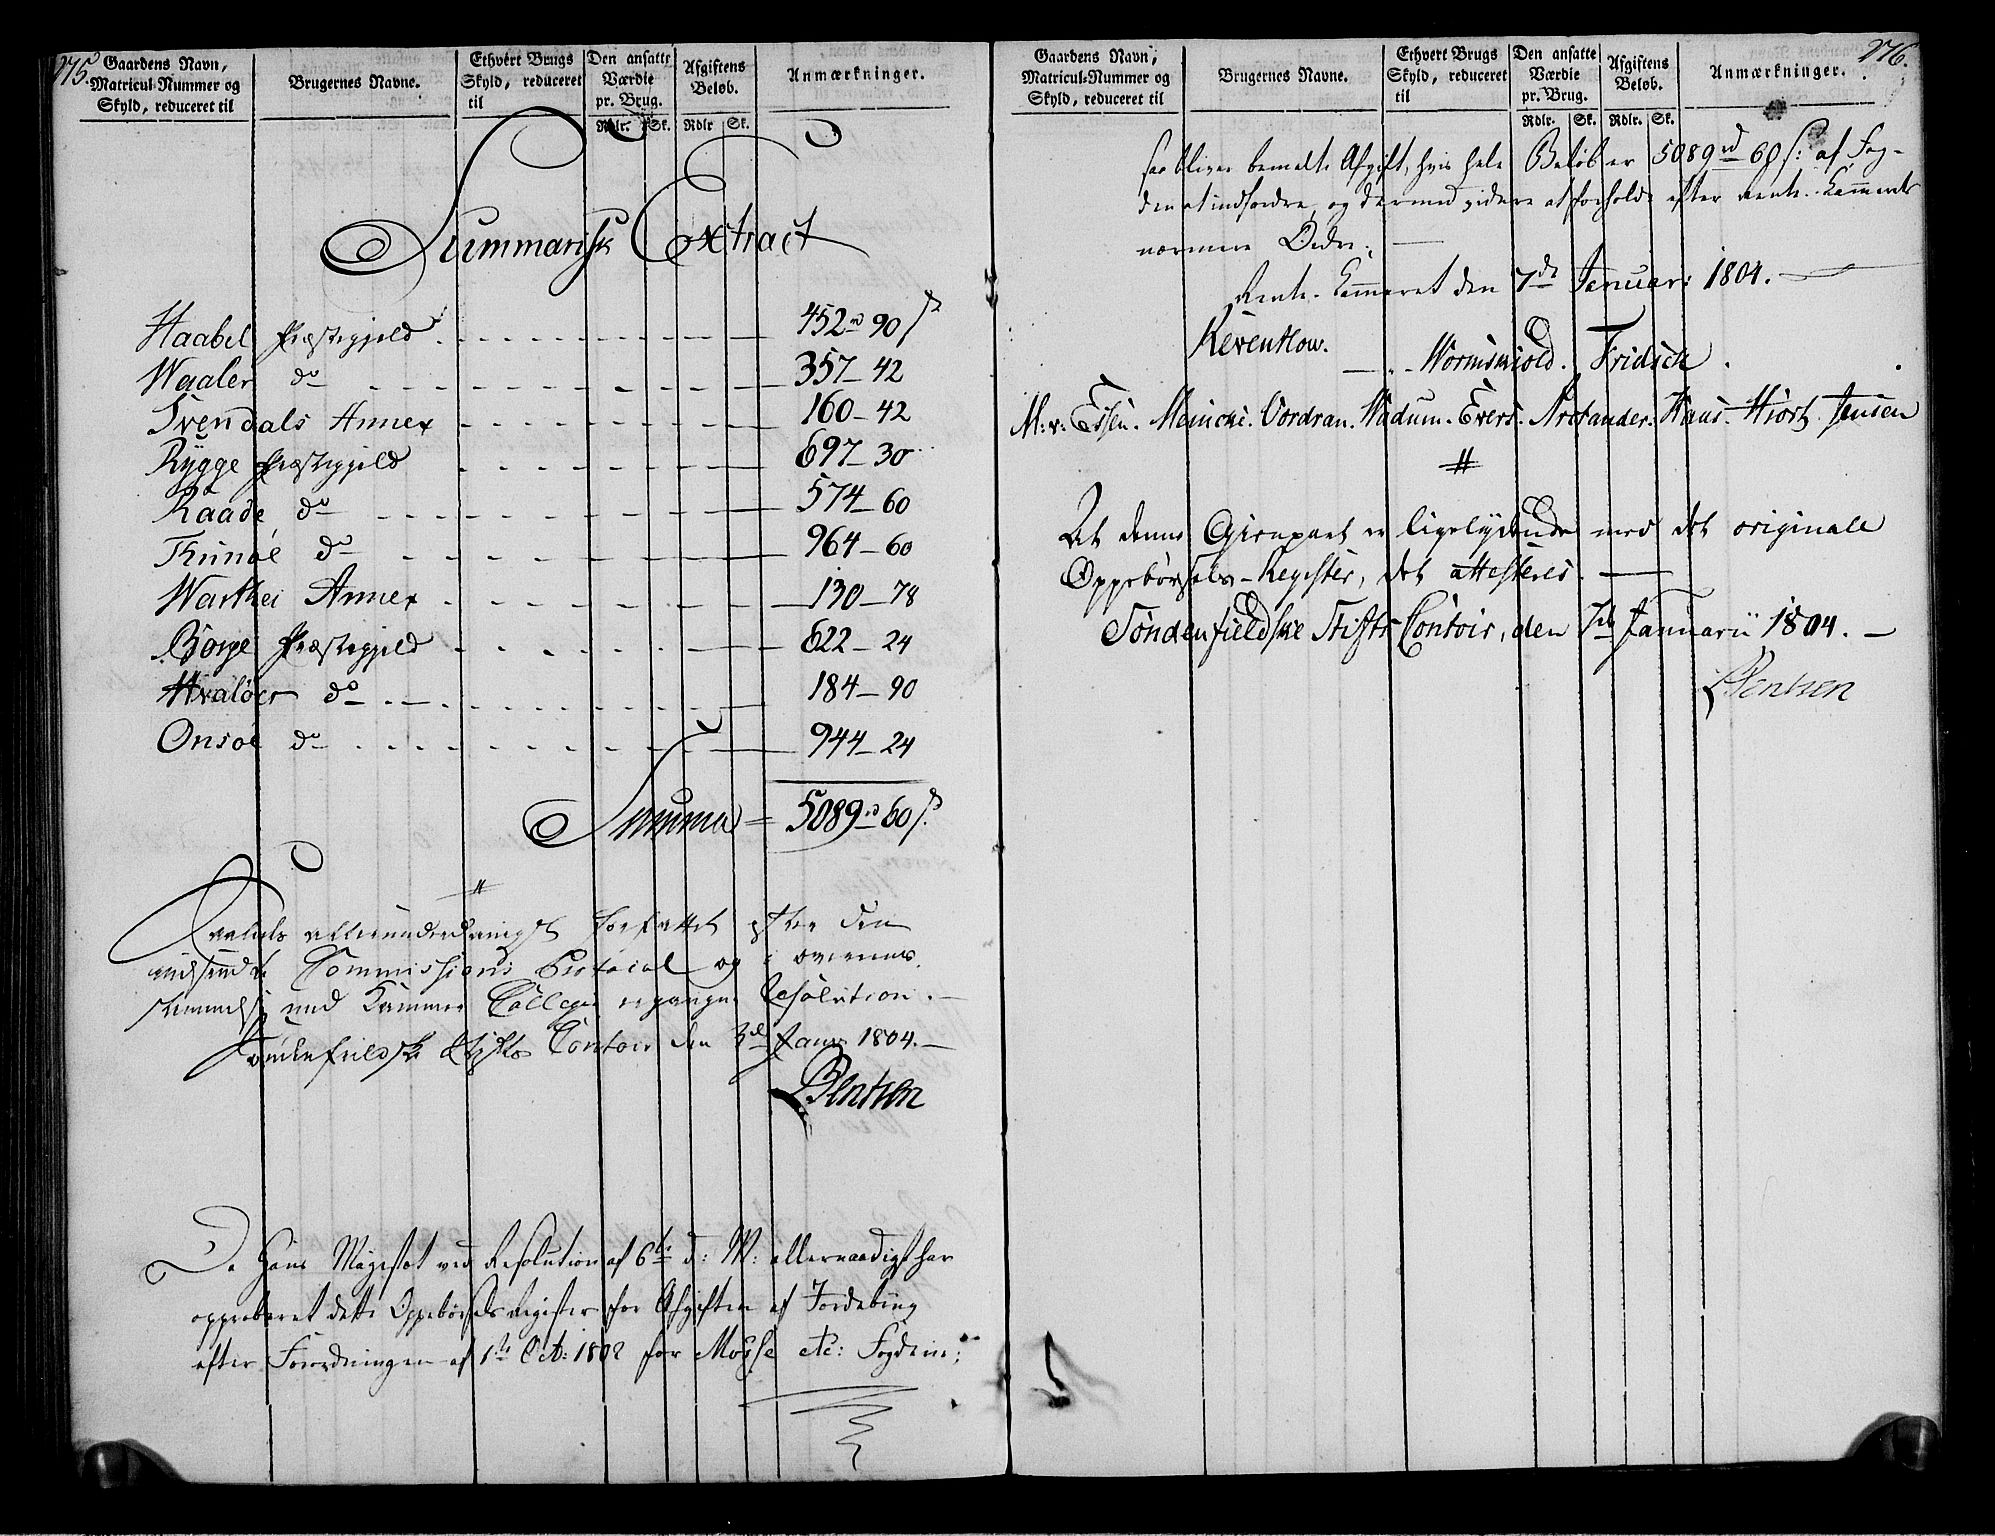 275.
Gaardens Navn, Matricul-Nummer og Skyld, reduceret til
Brugernes Navne.
Ethvert Brugs Skyld, reduceret til
Den ansatte Værdie pr. Brug.
Afgiftens Beløb.
Anmærkninger.
Rdlr. Sk. Rdlr Sk.
Summarisk Extract
Haabel Præstegjeld 452 rd 90 s
Waaler do 357 - 42
Svendals Annex 160 - 42
Rygge Præstegjeld 697 - 30
Raade do 574 - 60
Thunøe do 964 - 60
Warthei Annex 130 - 78
Borge Præstegjeld 622 - 24
Hvaløer do 184 - 90
Onsøe do 944 - 24
Summa = 5089 rd 60 s.
Saaledes allerunderdanigst forfattet efter den
indsendte Commissions Protocol og i overeens
stemmelse med Kammer Collegii ergangne Resolution. —
Søndenfieldske Stifts Contoir den 3de Janr 1804. —
Bentsen
Da Hans Majestet ved Resolution af 6te d: M: allernaadigst har
approberet dette Oppebørsels Register for Afgiften af Jordebrug
efter Forordningen af 1te Oct: 1802 for Mosse etc: Fogderie;
276.
Gaardens Navn, Matricul-Nummer og Skyld, reduceret til
Brugernes Navne.
Ethvert Brugs Skyld, reduceret til
Den ansatte Værdie pr. Brug.
Afgiftens Beløb.
Anmærkninger.
Rdlr. Sk. Rdlr. Sk.
saa bliver bemeldte Afgift, hvis hele Beløb er 5089 rd 60 s: af Fog-
den at indfordre, og dermed videre at forholde efter Rente-Kammerets
nærmere Ordre. —
Rente-Kammeret den 7de Januar: 1804. —
Reventlow.
Wormskiold. Fridsch.
M: v: Essen. Meincke. Vordran. Wadum. Evers. Arctander. Haus. Hiort. Jensen
#
At denne Gienpart er ligelydende med det originale
Oppebørsels-Register, det attesteres. —
Søndenfieldske Stifts Contoir, den 7de Januarii 1804. —
Bentsen